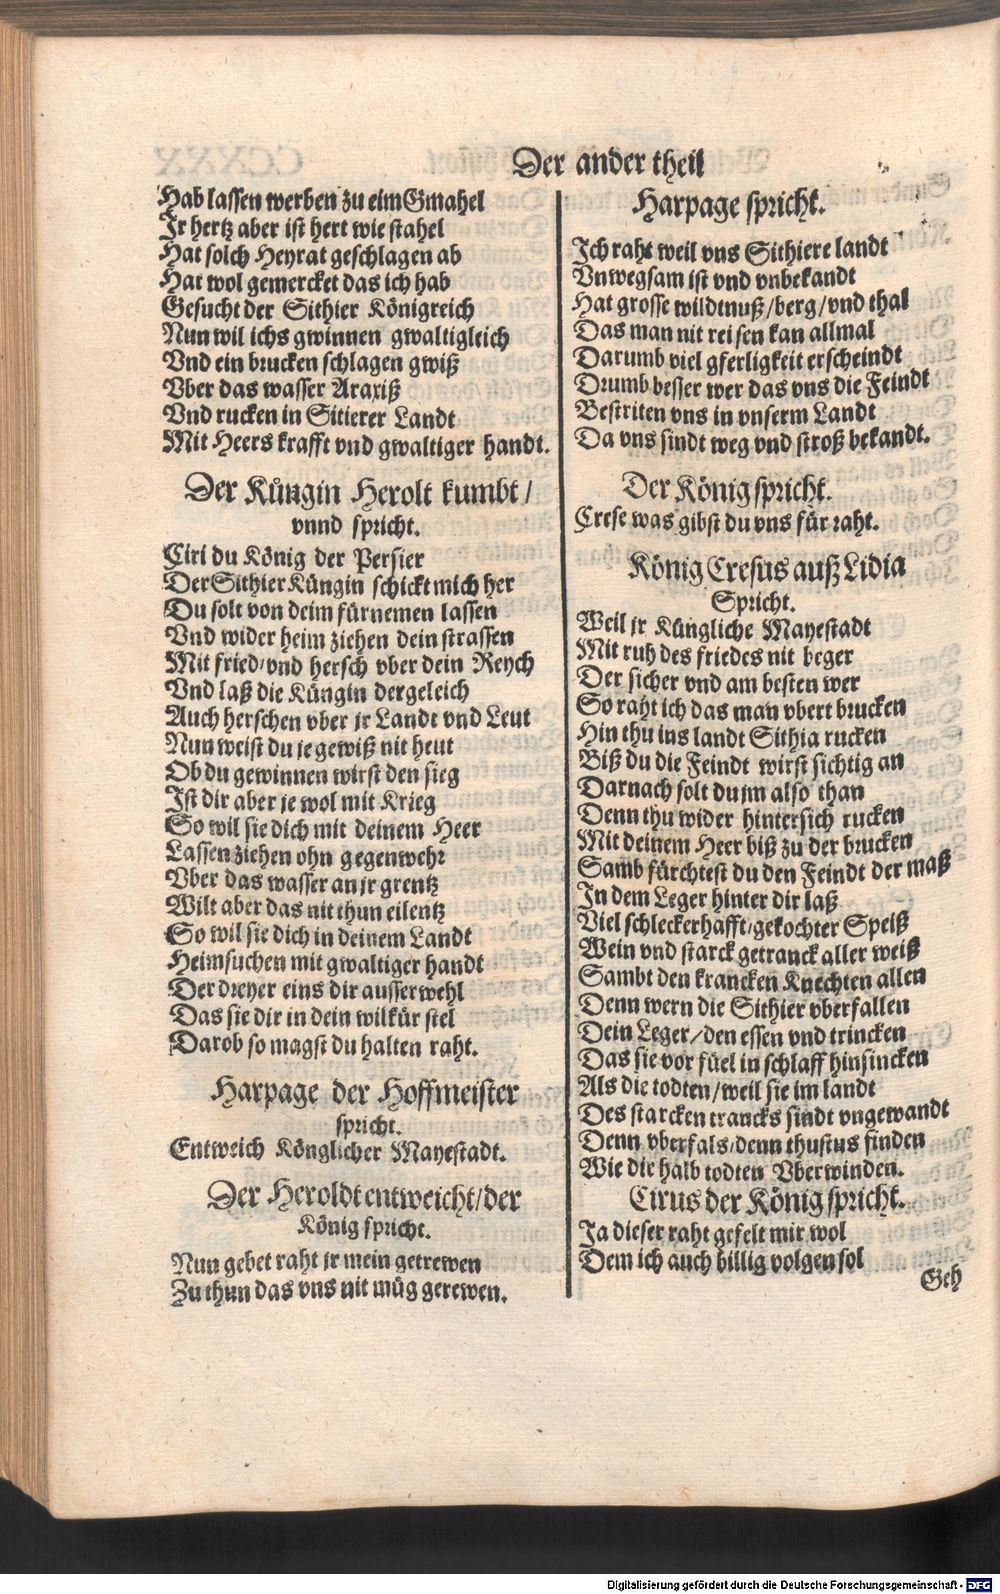 Der ander theil
Hab lassen werben zu eim Gmahel
Jr hertz aber ist hert wie stahel
Hat solch Heyrat geschlagen ab
Hat wol gemercket das ich hab
Gesucht der Sithier Königreich
Nun wil ichs gwinnen gwaltigleich
Vnd ein brucken schlagen gwiß
Vber das wasser Araxiß
Vnd rucken in Sitierer Landt
Mit Heers krafft vnd gwaltiger handt.
Der Küngin Herolt kumbt /
vnnd spricht.
Ciri du König der Persier
Der Sithier Küngin schickt mich her
Du solt von deim fürnemen lassen
Vnd wider heim ziehen dein strassen
Mit fried/vnd hersch vber dein Reych
Vnd laß die Küngin dergeleich
Auch herschen vber jr Landt vnd Leut
Nun weist du je gewiß nit heut
Ob du gewinnen wirst den sieg
Jst dir aber je wol mit Krieg
So wil sie dich mit deinem Heer
Lassen ziehen ohn gegenwehr
Vber das wasser an jr grentz
Wilt aber das nit thun eilentz
So wil sie dich in deinem Landt
Heimsuchen mit gwaltiger handt
Der dreyer eins dir ausserwehl
Das sie dir in dein wilkür stel
Darob so magst du halten raht.
Harpage der Hoffmeister
spricht.
Entweich Könglicher Mayestadt.
Der Heroldt entweicht/der
König spricht.
Nun gebet raht jr mein getrewen
Zu thun das vns nit müg gerewen.
Harpage spricht.
Jch raht weil vns Sithiere landt
Vnwegsam ist vnd vnbekandt
Hat grosse wildtnuß/berg/vnd thal
Das man nit reisen kan allmal
Darumb viel gferligkeit erscheindt
Drumb besser wer das vns die Feindt
Bestriten vns in vnserm Landt
Da vns sindt weg vnd stroß bekandt.
Der König spricht.
Crese was gibst du vns für raht.
König Cresus auß Lidia
Spricht.
Weil jr Küngliche Mayestadt
Mit ruh des friedes nit beger
Der sicher vnd am besten wer
So raht ich das man vbert brucken
Hin thu ins landt Sithia rucken
Biß du die Feindt wirst sichtig an
Darnach solt du jm also than
Denn thu wider hintersich rucken
Mit deinem Heer biß zu der brucken
Samb fürchtest du den Feindt der maß
Jn dem Leger hinter dir laß
Viel schleckerhafft/gekochter Speiß
Wein vnd starck getranck aller weiß
Sambt den krancken Knechten allen
Denn wern die Sithier vberfallen
Dein Leger/den essen vnd trincken
Das sie vor füel in schlaff hinsincken
Als die todten/weil sie im landt
Des starcken trancks sindt vngewandt
Denn vberfals/denn thustus finden
Wie die halb todten Vberwinden.
Cirus der König spricht.
Ja dieser raht gefelt mir wol
Dem ich auch billig volgen sol
Geh
Digitalisierung gefördert durch die Deutsche Forschungsgemeinschaft - DFG